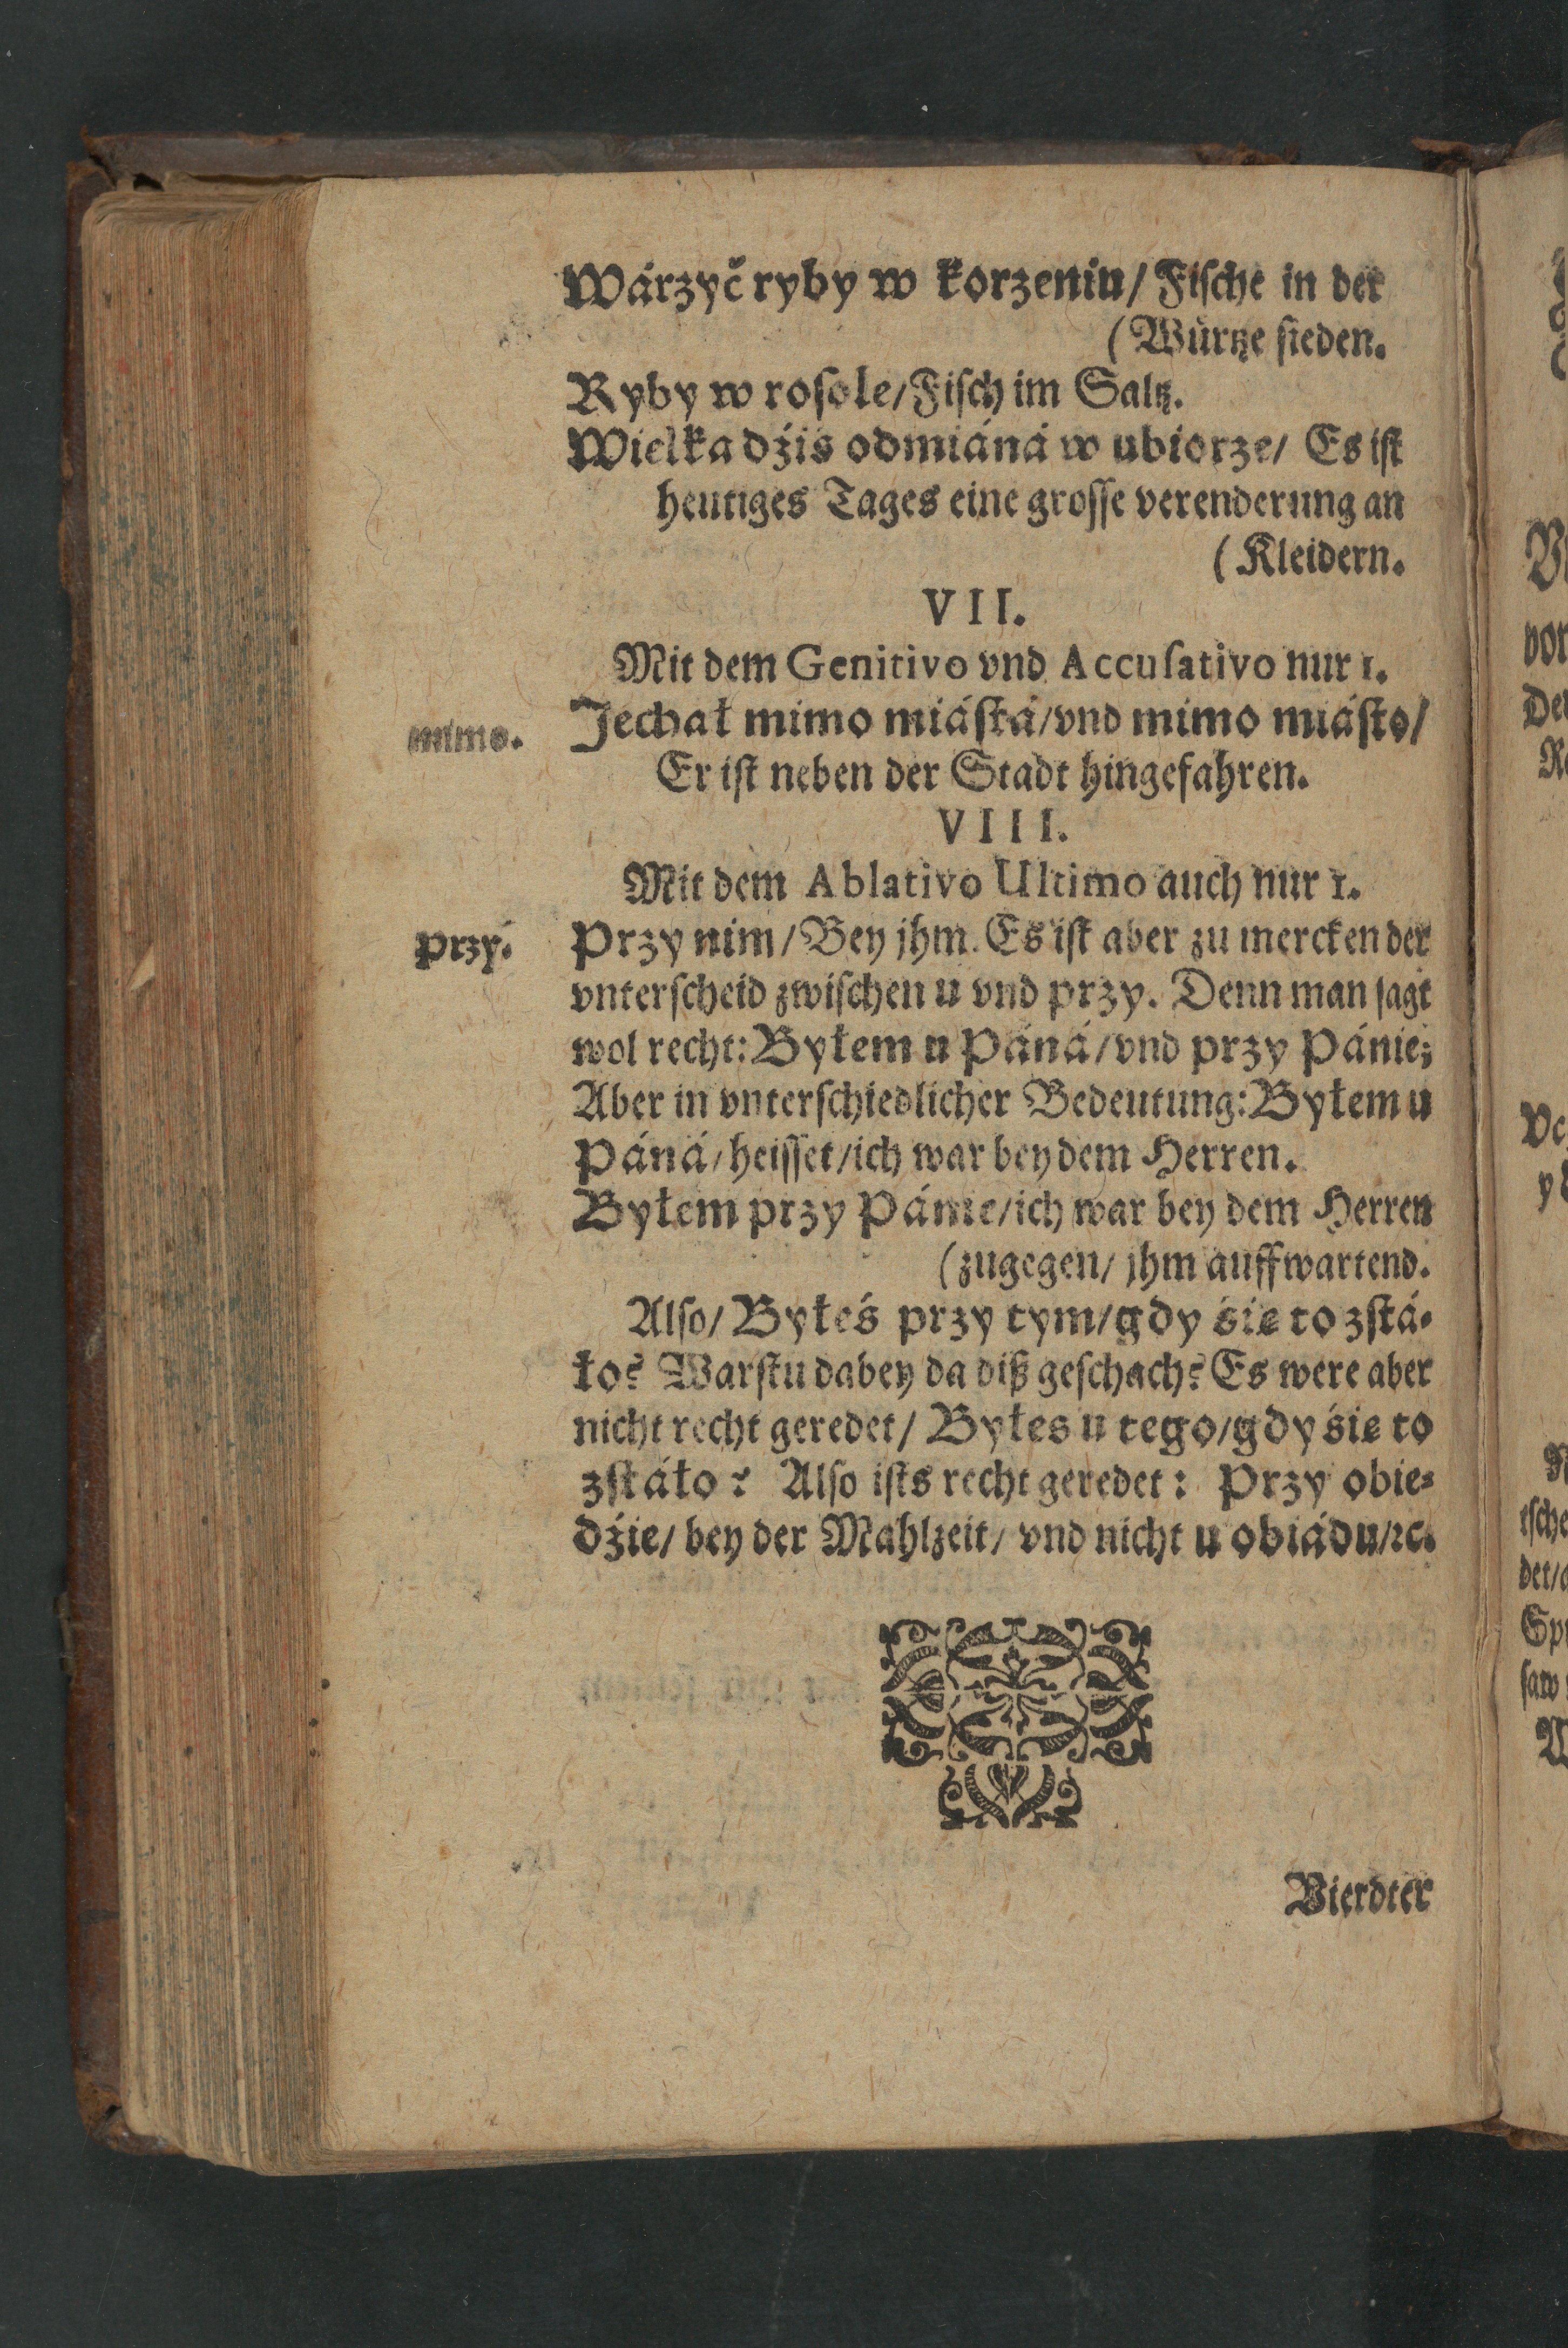 Wárzyć ryby w korzeniu/ Fische in der
(Würtze sieden.
Ryby w rosole/ Fisch im Saltz.
Wielka dźis odmiáná w ubiorze/ Es ist
heutiges Tages eine grosse verenderung an
(Kleidern.
VII.
Mit dem Genitivo vnd Accusativo nur 1.
mimo.
Jechał mimo miástá/ vnd mimo miásto/
Er ist neben der Stadt hingefahren.
VIII.
Mit dem Ablativo Ultimo auch nur 1.
przy.
Przy nim/ Bey jhm. Es ist aber zu mercken der
vnterscheid zwischen u vnd przy. Denn man sagt
wol recht: Byłem u Páná/ vnd przy Pánie;
Aber in vnterschiedlicher Bedeutung: Byłem u
Páná/ heisset/ ich war bey dem Herren.
Byłem przy Pánie/ ich war bey dem Herren
(zugegen/ jhm auffwartend.
Also/ Byłeś przy tym/ gdy śię to zstá-
ło? Warstu dabey da diß geschach? Es were aber
nicht recht geredet/ Byłes u tego/ gdy śię to
zstáło? Also ists recht geredet: Przy obie-
dźie/ bey der Mahlzeit/ vnd nicht u obiádu/ ꝛc.
Vierdter